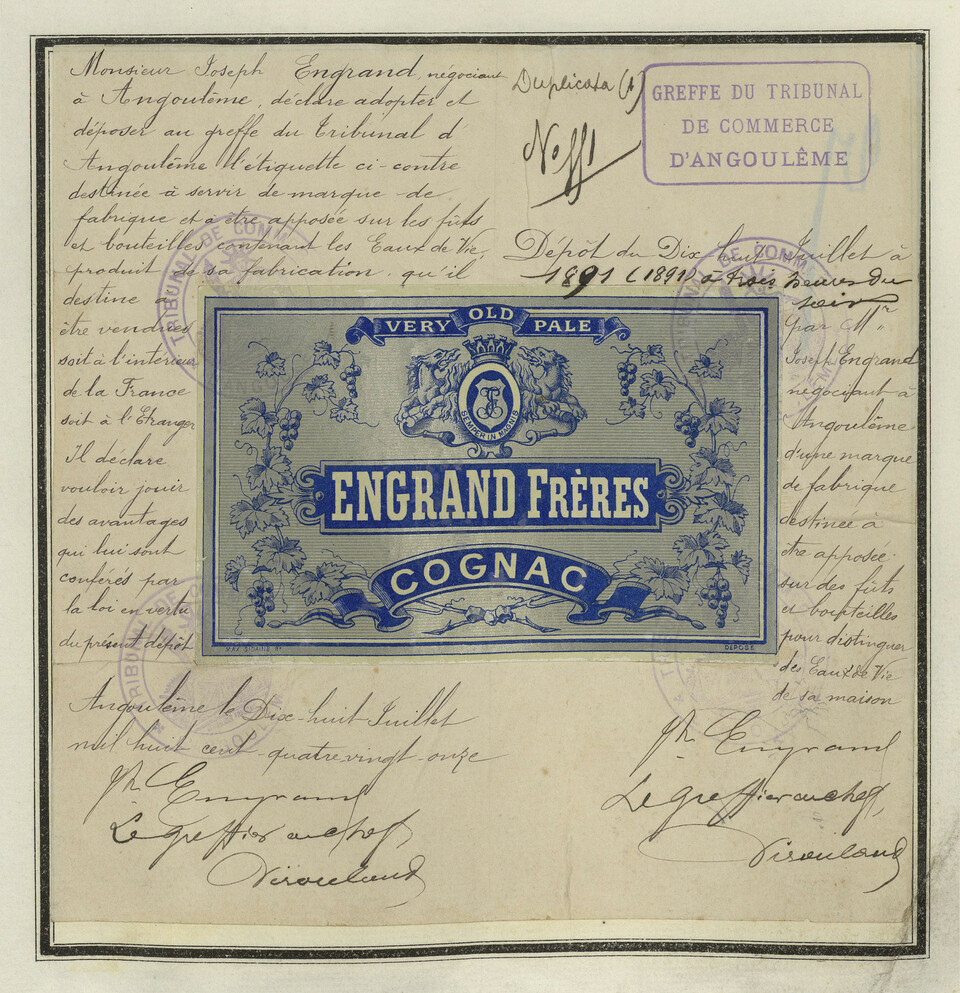 Monsieur Joseph Engrand, négociant
à Angoulême, déclare adopter et
déposer au greffe du Tribunal d'
Angoulême l'étiquette ci-contre
destinée à servir de marque de
fabrique et à être apposée sur les fûts
et bouteilles contenant les Eaux de Vie,
produit de sa fabrication, qu'il
destine à
être vendues
soit à l'intérieur
de la France
soit à l'Etranger
Il déclare
vouloir jouir
des avantages
qui lui sont
conférés par
la loi en vertu
du présent dépôt
Angoulême le Dix-huit Juillet
mil huit cent quatre vingt onze
Jh. Engrand
Le greffier en chef
Duplicata (1)
GREFFE DU TRIBUNAL
DE COMMERCE
D'ANGOULÊME
Dépôt du Dix huit Juillet à
1891 (1891) à trois heures du
soir
par Mr
Joseph Engrand
négociant à
Angoulême
d'une marque
de fabrique
destinée à
être apposée
sur des fûts
et bouteilles
pour distinguer
des Eaux de Vie
de sa maison
Jh. Engrand
Le greffier en chef
VERY OLD PALE
SEMPER IN MAGNIS
ENGRAND FRÈRES
COGNAC
DÉPOSÉ
TRIBUNAL DE COMM